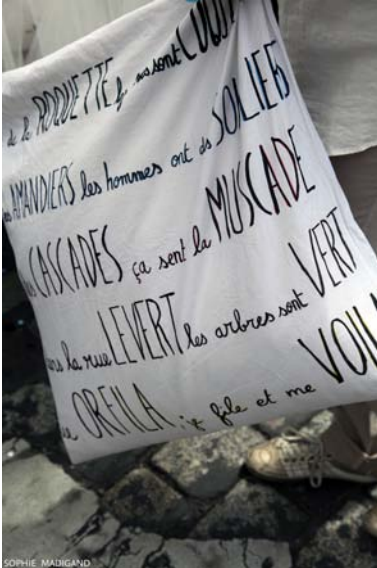 de la ROQUETTE
AMANDIERS les hommes ont ds SOLIERS
CASCADES ça sent la MUSCADE
la rue LEVERT les arbres sont VERT
ORFILA je file et me
SOPHIE MADIGAND